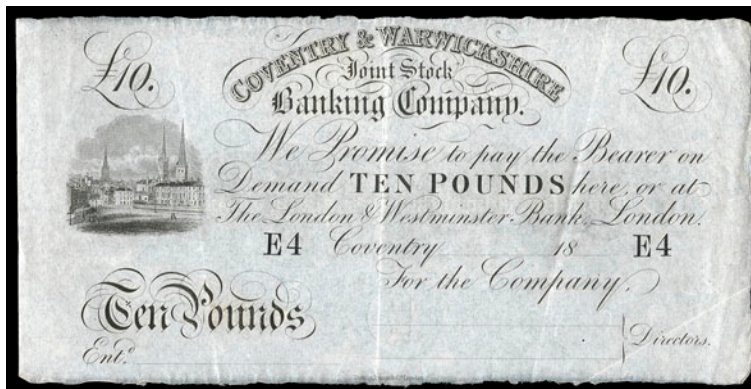 £10. COVENTRY & WARWICKSHIRE £10.
Joint Stock
Banking Company.
We Promise to pay the Bearer on
Demand TEN POUNDS here, or at
The London & Westminster Bank, London.
E4 Coventry 18 E4
For the Company,
Ten Pounds
Directors.
Entd.